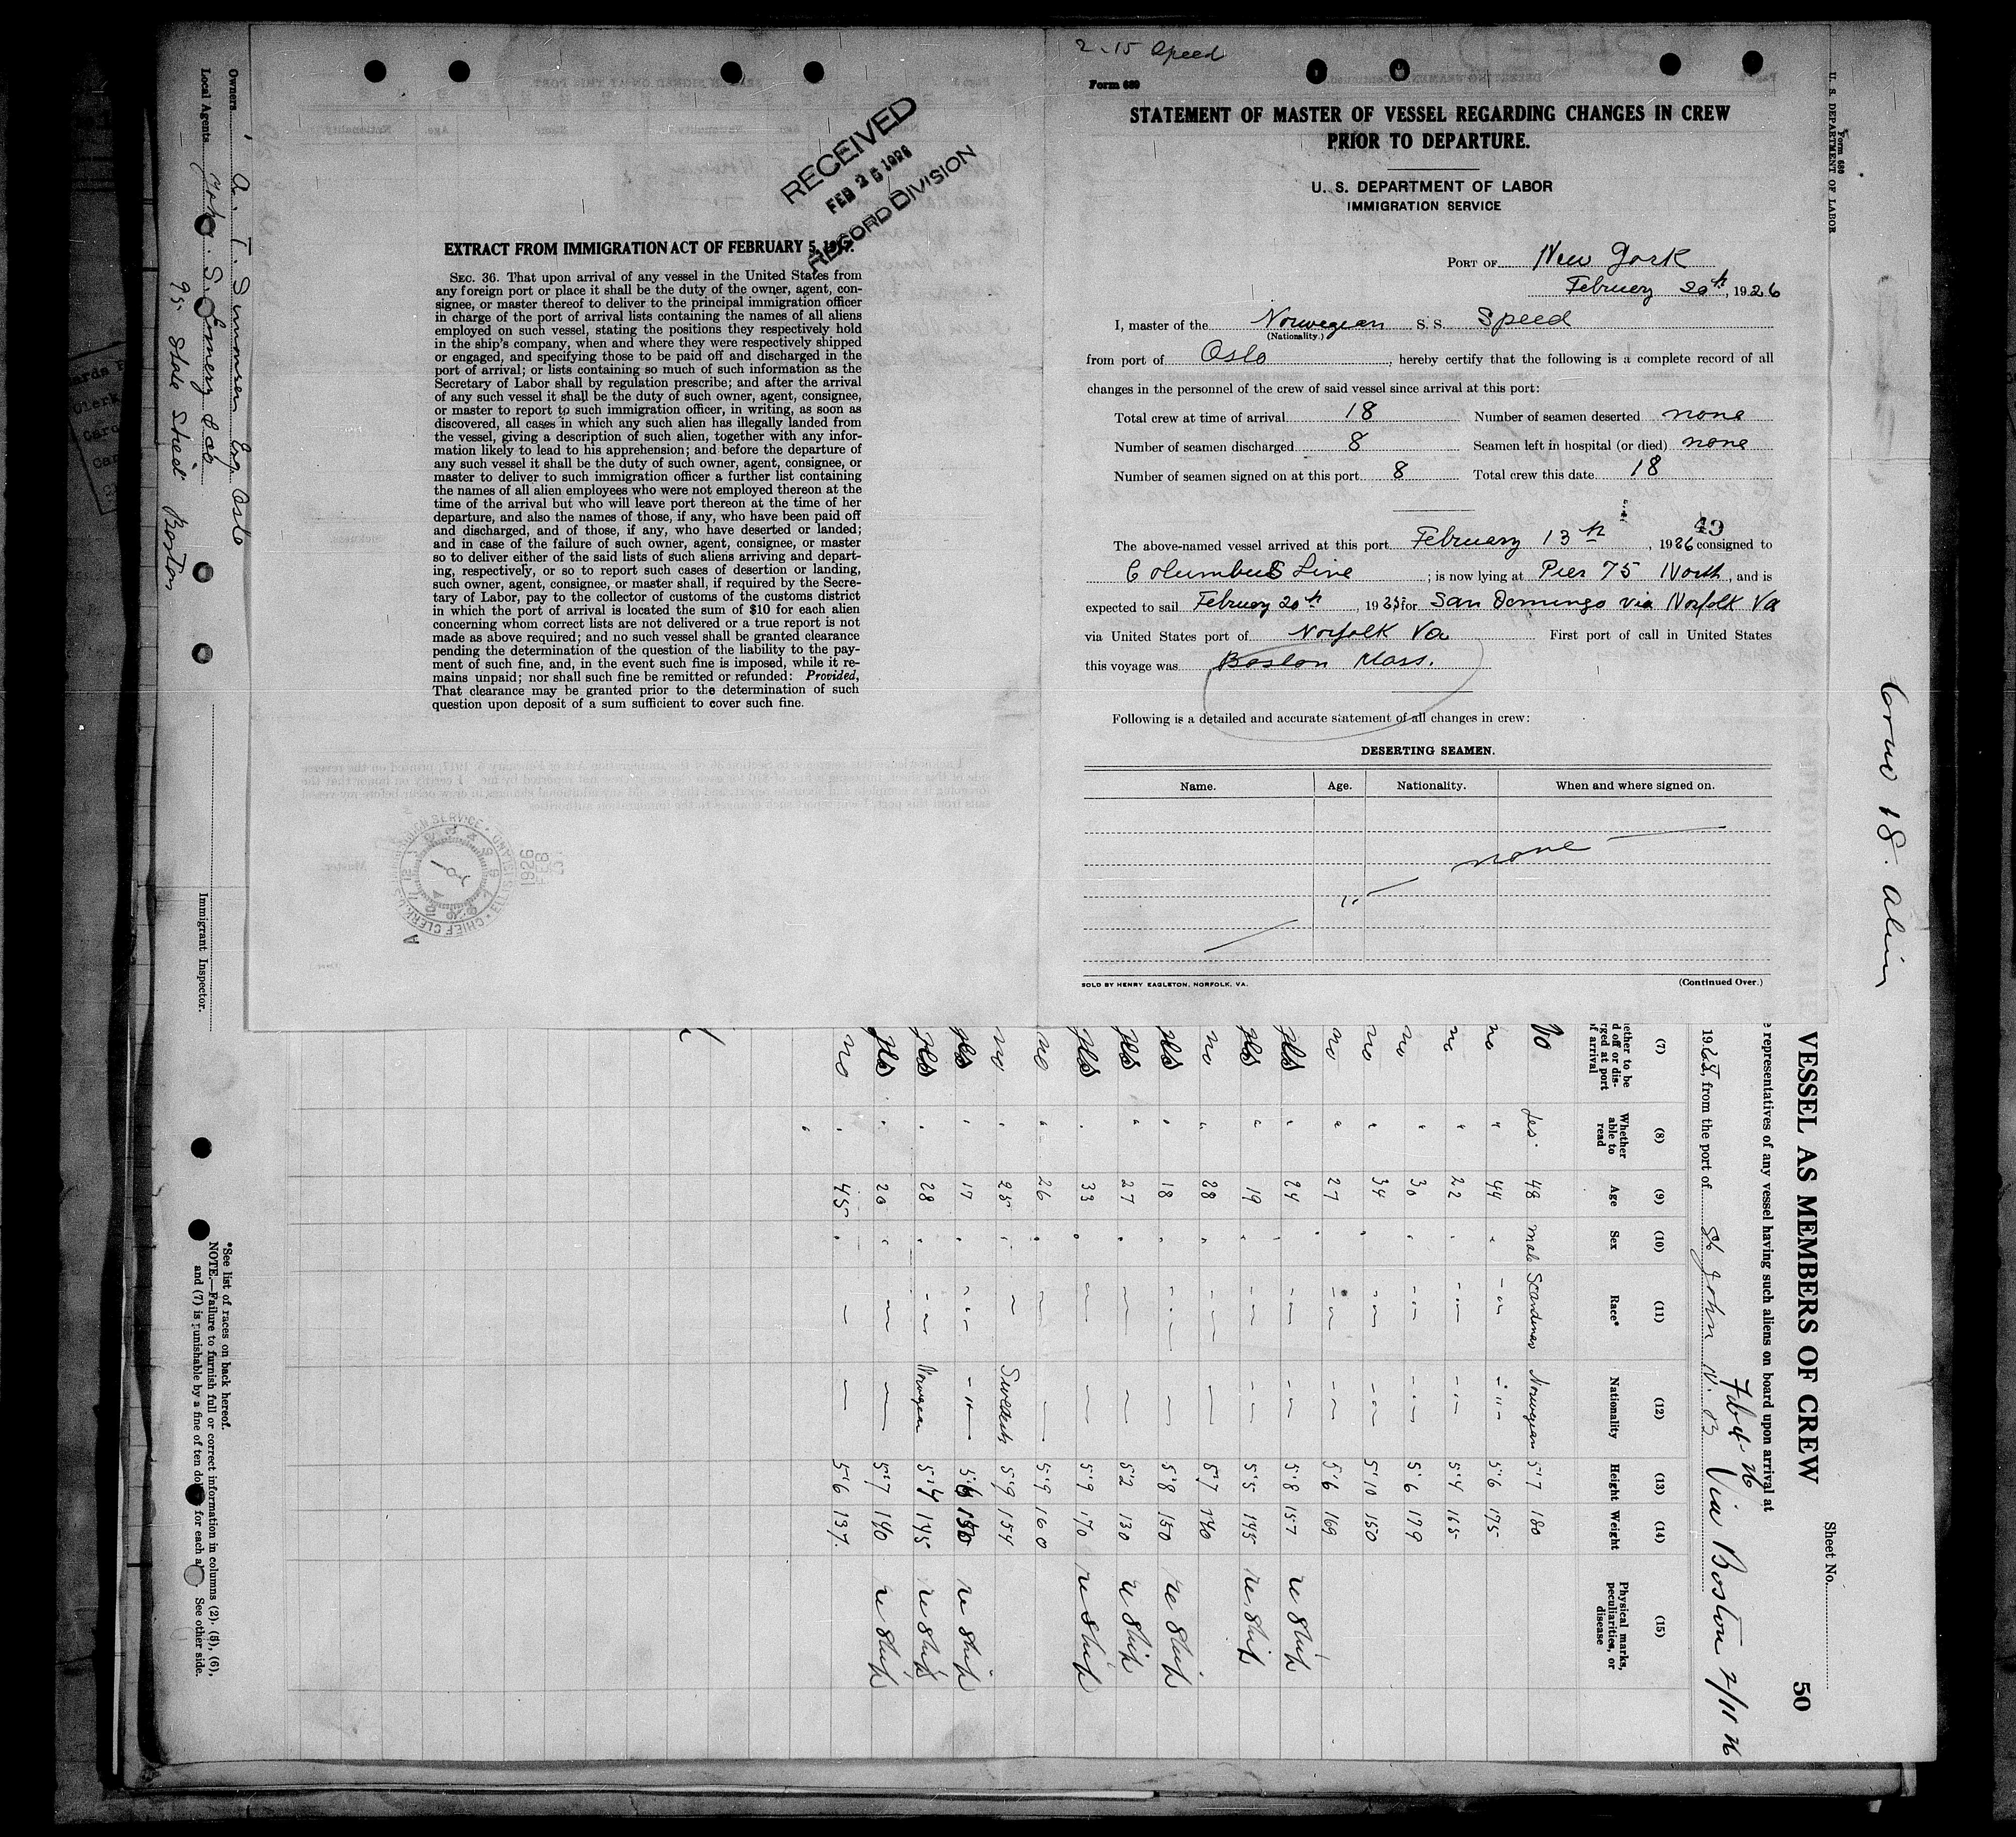 2-15 Speed
Form 689
STATEMENT OF MASTER OF VESSEL REGARDING CHANGES IN CREW
PRIOR TO DEPARTURE.
U. S. DEPARTMENT OF LABOR
IMMIGRATION SERVICE
PORT OF New York
February 20th, 1926
I, master of the Norwegian S. S. Speed
(Nationality.)
from port of Oslo, hereby certify that the following is a complete record of all
changes in the personnel of the crew of said vessel since arrival at this port:
Total crew at time of arrival 18 Number of seamen deserted none
Number of seamen discharged 8 Seamen left in hospital (or died) none
Number of seamen signed on at this port 8 Total crew this date 18
49
The above-named vessel arrived at this port February 13th, 1926 consigned to
Columbus Line; is now lying at Pier 75 North, and is
expected to sail February 20th, 19 for San Domingo via Norfolk Va
via United States port of Norfolk Va First port of call in United States
this voyage was Boston Mass.
Following is a detailed and accurate statement of all changes in crew:
DESERTING SEAMEN.
Name. Age. Nationality. When and where signed on.
none
SOLD BY HENRY EAGLETON, NORFOLK, VA.
(Continued Over.)
RECEIVED
FEB 25 1926
RECORD DIVISION
EXTRACT FROM IMMIGRATION ACT OF FEBRUARY 5, 1917.
SEC. 36. That upon arrival of any vessel in the United States from
any foreign port or place it shall be the duty of the owner, agent, con-
signee, or master thereof to deliver to the principal immigration officer
in charge of the port of arrival lists containing the names of all aliens
employed on such vessel, stating the positions they respectively hold
in the ship's company, when and where they were respectively shipped
or engaged, and specifying those to be paid off and discharged in the
port of arrival; or lists containing so much of such information as the
Secretary of Labor shall by regulation prescribe; and after the arrival
of any such vessel it shall be the duty of such owner, agent, consignee,
or master to report to such immigration officer, in writing, as soon as
discovered, all cases in which any such alien has illegally landed from
the vessel, giving a description of such alien, together with any infor-
mation likely to lead to his apprehension; and before the departure of
any such vessel it shall be the duty of such owner, agent, consignee, or
master to deliver to such immigration officer a further list containing
the names of all alien employees who were not employed thereon at the
time of the arrival but who will leave port thereon at the time of her
departure, and also the names of those, if any, who have been paid off
and discharged, and of those, if any, who have deserted or landed;
and in case of the failure of such owner, agent, consignee, or master
so to deliver either of the said lists of such aliens arriving and depart-
ing, respectively, or so to report such cases of desertion or landing,
such owner, agent, consignee, or master shall, if required by the Secre-
tary of Labor, pay to the collector of customs of the customs district
in which the port of arrival is located the sum of $10 for each alien
concerning whom correct lists are not delivered or a true report is not
made as above required; and no such vessel shall be granted clearance
pending the determination of the question of the liability to the pay-
ment of such fine, and, in the event such fine is imposed, while it re-
mains unpaid; nor shall such fine be remitted or refunded: Provided,
That clearance may be granted prior to the determination of such
question upon deposit of a sum sufficient to cover such fine.
Form 680
U. S. DEPARTMENT OF LABOR
Crew 18. alien
Sheet No.
50
VESSEL AS MEMBERS OF CREW
representatives of any vessel having such aliens on board upon arrival at
, from the port of St John N. B Via Boston 2/11 26
(7) (8) (9) (10) (11) (12) (13) (14) (15)
Whether able to read Age Sex Race* Nationality Height Weight Physical marks, peculiarities, or disease
no yes 48 male Scandinav Norwegian 5'7 180
no " 44 " - " - - " - 5'6 175
no " 22 " - " - - " - 5'4 165
no " 30 " - " - - " - 5'6 179
no " 34 " - " - - " - 5'10 150
no " 27 " - " - - " - 5'6 169
yes " 24 " - " - - " - 5'8 157 re ship
yes " 19 " - " - - " - 5'5 145 re ship
no " 28 " - " - — 5'7 140
yes " 18 " - " - — 5'8 150 re ship
yes " 27 " — — 5'2 130 re ship
yes " 33 " — — 5'9 170 re ship
no " 26 " — — 5'9 160
no " 25 " — Swedish 5'9 154
yes " 17 " - " - - " - 5'6 150 re ship
yes " 28 " - " - Norwegian 5'4 145 re ship
yes " 20 " — — 5'7 140 re ship
no " 45 " — — 5'6 137.
Owners A. T. Simonsen Esq. Oslo
Local Agents John S. Emery & Co
95 State Street Boston
Immigrant Inspector.
*See list of races on back hereof.
NOTE.—Failure to furnish full or correct information in columns (2), (5), (6),
and (7) is punishable by a fine of ten dollars for each alien. See other side.